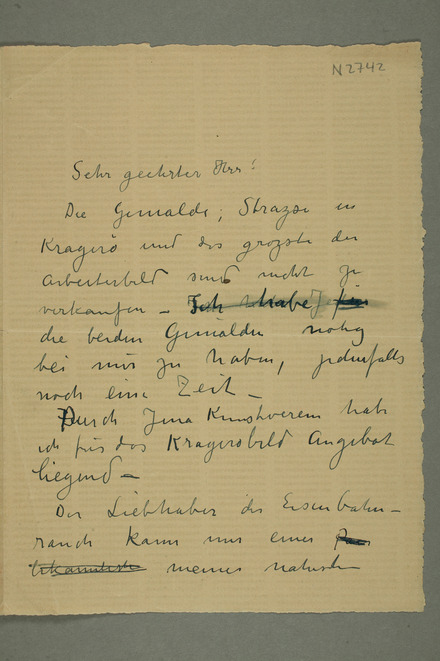 N 2742
Sehr geehrter Herr!
Die Gemälde; Strasse in
Kragerö und das grosste der
Arbeiterbild sind nicht zu
verkaufen – Ich habe
die beiden Gemälden nötig
bei mir zu haben, jedenfalls
noch eine Zeit –
Durch Jena Kunstverein hab
ich für das Kragerobild Angebot
liegend –
Der Liebhaber des Eisenbahn–
rauch kann nur einer
bekannteste meines naturs